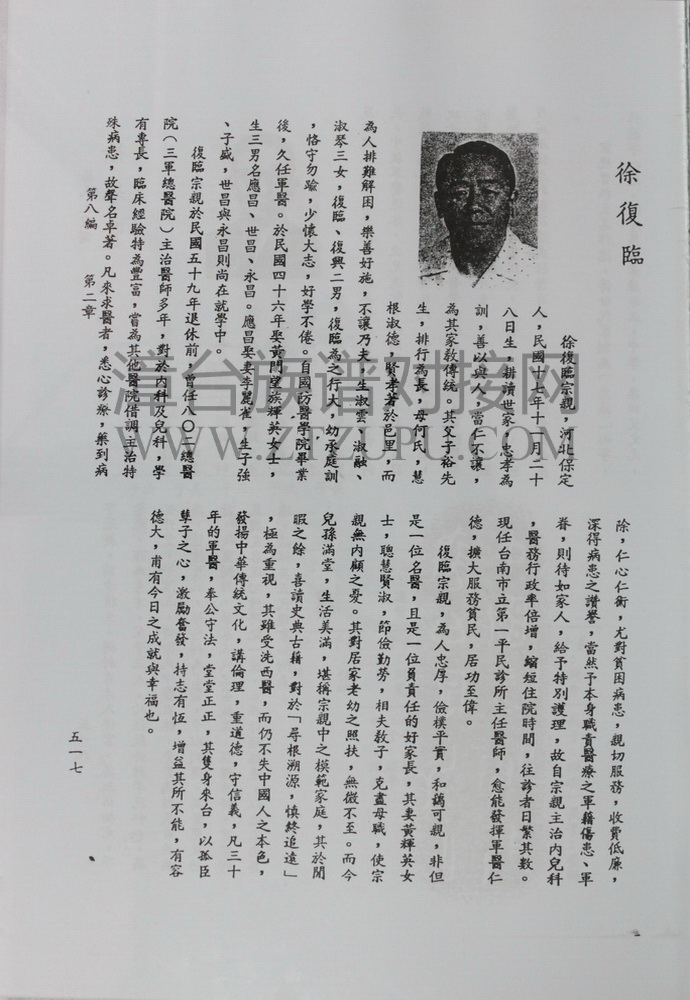 徐復臨
徐復臨宗親，河北保定
人，民國十七年十一月二十
八日生，耕讀世家，忠孝為
訓，善以與人，當仁不讓，
為其家教傳統。其父子裕先
生，排行為長，母何氏，慧
根淑德，賢孝著於邑里，而
為人排難解困，樂善好施，不讓乃夫，生淑雲、淑融、
淑琴三女，復臨、復興二男，復臨為之行大，幼承庭訓
，恪守勿踰，少懷大志，好學不倦。自國防醫學院畢業
後，久任軍醫。於民國四十六年娶黃門望族輝英女士，
生三男名應昌、世昌、永昌。應昌娶妻李麗雀，生子強
、子盛，世昌與永昌則尚在就學中。
復臨宗親於民國五十九年退休前，曾任八〇二總醫
院（三軍總醫院）主治醫師多年，對於內科及兒科，學
有專長，臨床經驗特為豐富，嘗為其他醫院借調主治特
殊病患，故聲名卓著。凡來求醫者，悉心診療，藥到病
第八編　第二章
除，仁心仁術，尤對貧困病患，親切服務，收費低廉，
深得病患之讚譽，當然予本身職責醫療之軍籍傷患、軍
眷，則待如家人，給予特別護理，故自宗親主治內兒科
，醫務行政率倍增，縮短住院時間，往診者日繁其數。
現任台南市立第一平民診所主任醫師，愈能發揮軍醫仁
德，擴大服務貧民，居功至偉。
復臨宗親，為人忠厚，儉樸平實，和藹可親，非但
是一位名醫，且是一位負責任的好家長，其妻黃輝英女
士，聰慧賢淑，節儉勤勞，相夫教子，克盡母職，使宗
親無內顧之憂。其對居家老幼之照扶，無微不至。而今
兒孫滿堂，生活美滿，堪稱宗親中之模範家庭，其於閒
暇之餘，喜讀史典古籍，對於「尋根溯源，慎終追遠」
，極為重視，其雖受洗西醫，而仍不失中國人之本色，
發揚中華傳統文化，講倫理，重道德，守信義，凡三十
年的軍醫，奉公守法，堂堂正正，其隻身來台，以孤臣
孽子之心，激勵奮發，持志有恆，增益其所不能，有容
德大，甫有今日之成就與幸福也。
五一七
清台族谱对接网
WWW.ZTZUPU.COM